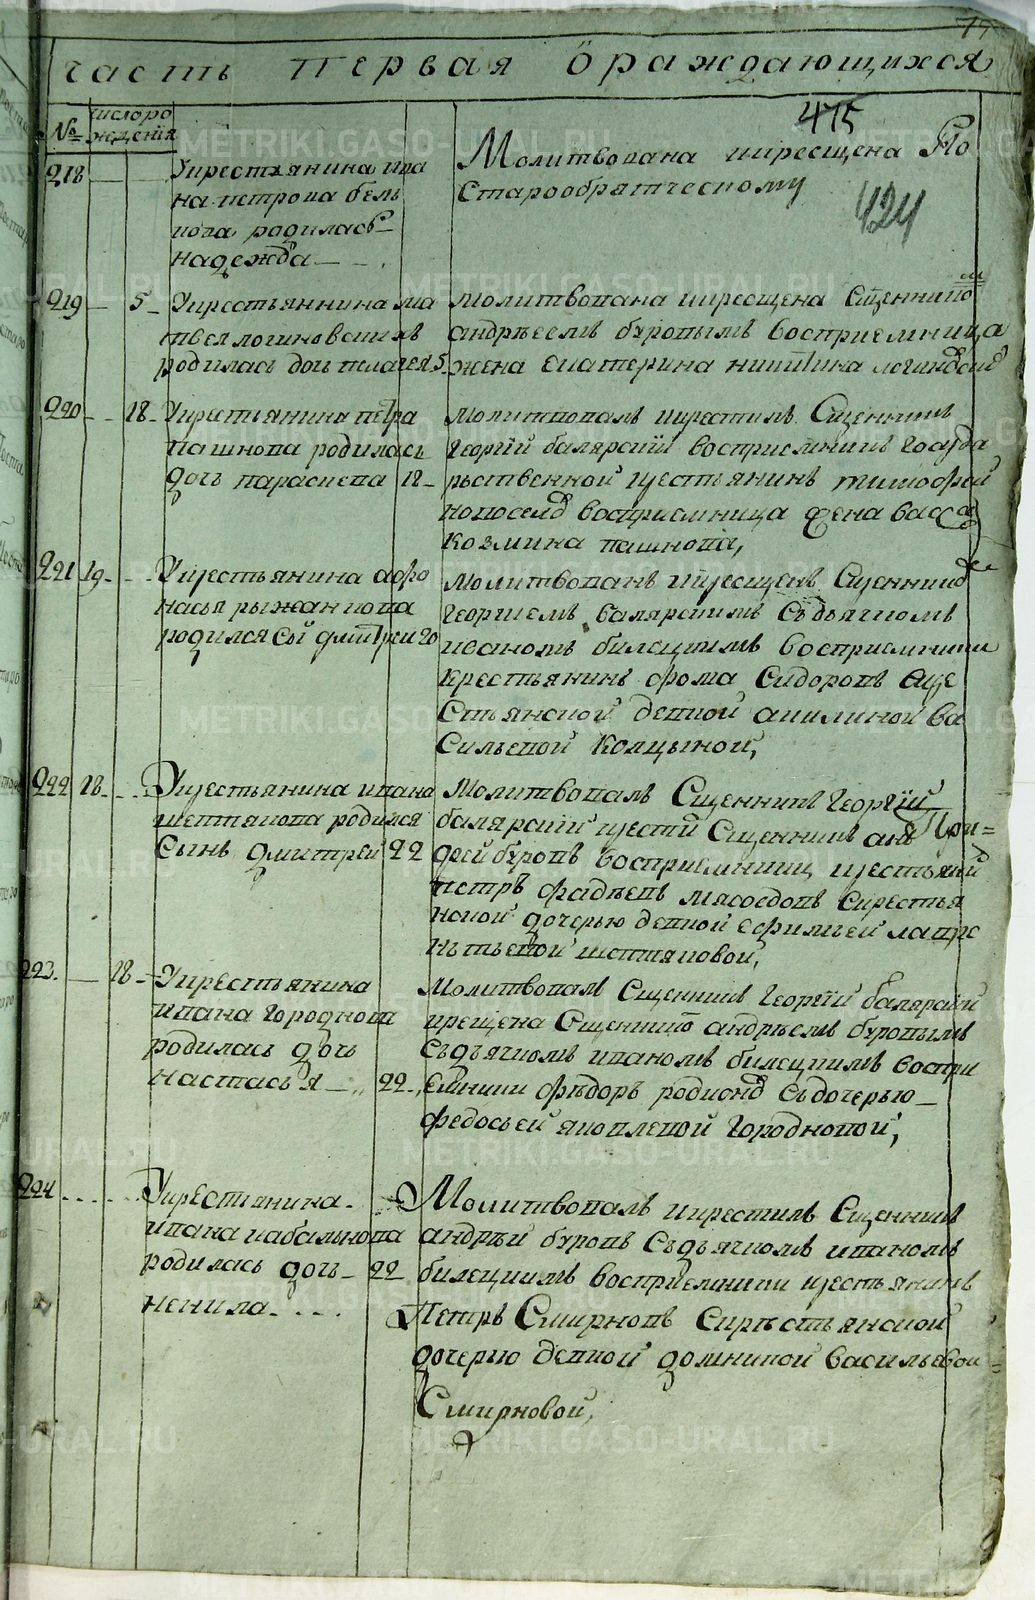 часть первая о раждающихся
415
424
№
число рождения
218
Укрестьянина ива
на петрова бель
кова родилась
надежда
Молитвована икрещена По
Старообрятческому
219 5
Укрестьяннина ма
твея логиновских
родилась дочь пелагея 5
молитвована икрещена Сщенником
андрѣеемъ буровымъ восприемница
жена екатерина никитина
220 18
Укрестьянина петра
пашкова родилась
дочь параскева 18
молитвовалъ икрестилъ Сщенникъ
георгiй балярскiй восприемникъ госуда
рьственной крестьянинъ тимофей
новоселовъ восприемница жена васса
козмина пашкова,
221 19
Укрестьянина афо
насья рыжанкова
родился сынъ дмитрей 20
молитвованъ икрещенъ Сщенником
георгиемъ балярскимъ Съдьячкомъ
иваномъ билецкимъ восприемники
крестьянинъ фома Сидоровъ
Стьянской девкой акилиной ва
Сильевой Колцыной,
222 18
Укрестьянина ивана
шептякова родился
Сынъ дмитрей 22
Молитвовалъ Сщенникъ георгiй
балярскiй крести Сщенникъ ань При=
дрей буровъ восприемники крестьянинъ
петръ фадѣевъ мясоедовъ Скрестья
нской дочерью девкой ефимьей лавре
нтьевой шептяковой,
223. 18
Укрестьянина
ивана городнова
родилась дочь
настасья 22
Молитвовалъ Сщенникъ георгiй балярскiй
крещена Сщенникомъ андрѣемъ буровымъ
Съдьячкомъ иваномъ билецкимъ воспри
емники фѣдоръ родионовъ Съдочерью
федосьей яковлевой городновой,
224
Укрестьянина
ивана кабалькова
родилась дочь 22
ненила
Молитвовалъ икрестилъ Сщенникъ
андрѣй буровъ Съдьячкомъ иваномъ
билецкимъ восприемники крестьянинъ
Петръ Смирновъ Скрѣстьянской
дочерью девкой домникой васильевой
Смирновой,